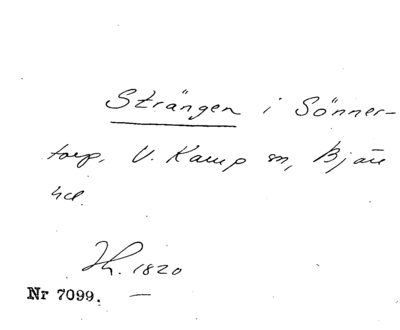 Strängen i Sönner-
torp, V. Karup sn, Bjäre
hd.
Jh. 1820
Nr 7099.